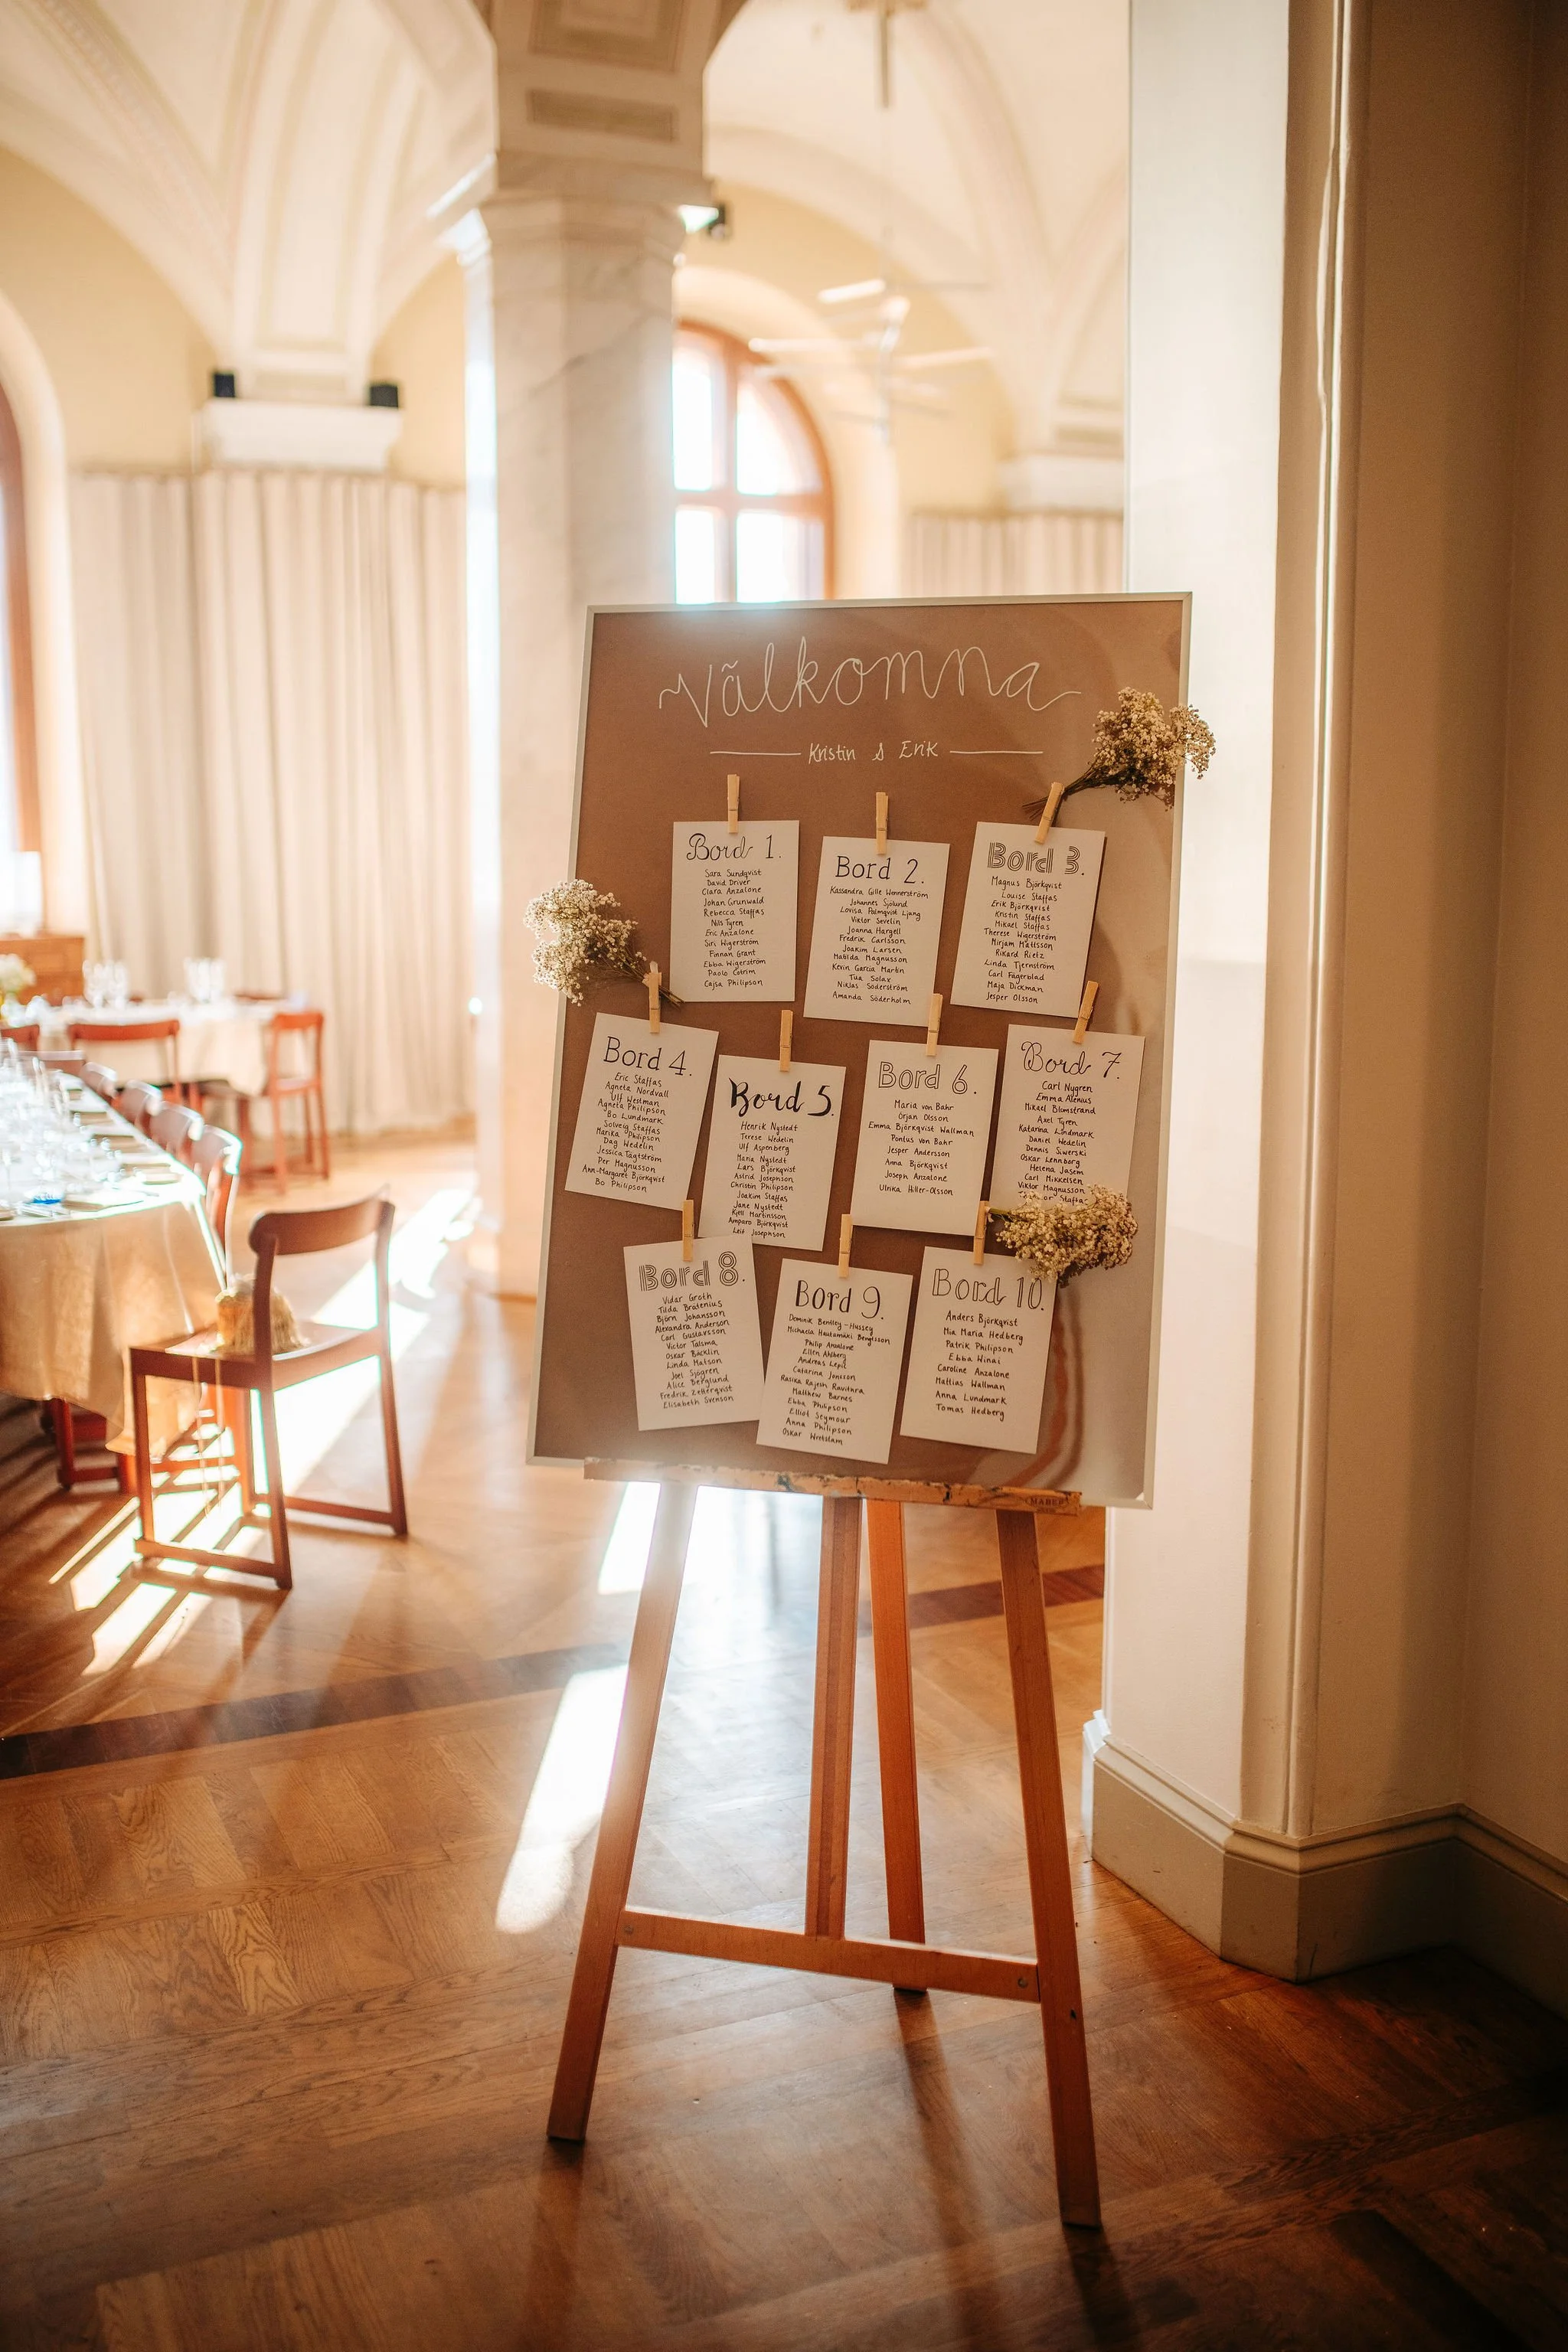 Välkomna
Kristin & Erik
Bord 1.
Sara Sundqvist
David Driver
Clara Anzalone
Johan Grunwald
Rebecca Staffas
Nils Tyren
Eric Anzalone
Siri Wigerström
Finnan Grant
Ebba Wigerström
Paolo Cotrim
Cajsa Philipson
Bord 2.
Kassandra Gille Wennerström
Johannes Sjölund
Lovisa Palmqvist Ljung
Viktor Sevelin
Joanna Hargell
Fredrik Carlsson
Joakim Larsen
Matilda Magnusson
Kevin Garcia Martin
Tua Solax
Niklas Söderström
Amanda Söderholm
Bord 3.
Magnus Björkqvist
Louise Staffas
Erik Björkqvist
Kristin Staffas
Mikael Staffas
Therese Wigerström
Mirjam Mattsson
Rikard Rietz
Linda Tjernström
Carl Fagerblad
Maja Dickman
Jesper Olsson
Bord 4.
Eric Staffas
Agneta Nordvall
Ulf Westman
Agneta Philipson
Bo Lundmark
Solveig Staffas
Marika Philipson
Dag Wedelin
Jessica Tägtström
Per Magnusson
Ann-Margaret Björkqvist
Bo Philipson
Bord 5.
Henrik Nystedt
Terese Wedelin
Ulf Aspenberg
Maria Nystedt
Lars Björkqvist
Astrid Josephson
Christin Philipson
Joakim Staffas
Jane Nystedt
Kjell Martinsson
Amparo Björkqvist
Leif Josephson
Bord 6.
Maria von Bahr
Örjan Olsson
Emma Björkqvist Wallman
Pontus von Bahr
Jesper Andersson
Anna Björkqvist
Joseph Anzalone
Ulrika Hiller-Olsson
Bord 7.
Carl Nygren
Emma Alenius
Mikael Blomstrand
Axel Tyren
Katarina Lindmark
Daniel Wedelin
Dennis Siwerski
Oskar Lennborg
Helena Jasem
Carl Mikkelsen
Viktor Magnusson
Staffas
Bord 8.
Vidar Groth
Tilda Bratenius
Björn Johansson
Alexandra Anderson
Carl Gustavsson
Victor Talsma
Oskar Bäcklin
Linda Matson
Joel Sjögren
Alice Berglund
Fredrik Zetterqvist
Elisabeth Svenson
Bord 9.
Dominik Bentley-Hussey
Michaela Hautamäki Bengtsson
Philip Anzalone
Ellen Ahlberg
Andreas Lepic
Catarina Jonsson
Rasika Rajesh Ravindra
Matthew Barnes
Ebba Philipson
Elliot Seymour
Anna Philipson
Oskar
Bord 10.
Anders Björkqvist
Mia Maria Hedberg
Patrik Philipson
Ebba Winai
Caroline Anzalone
Mattias Wallman
Anna Lundmark
Tomas Hedberg
MABEF